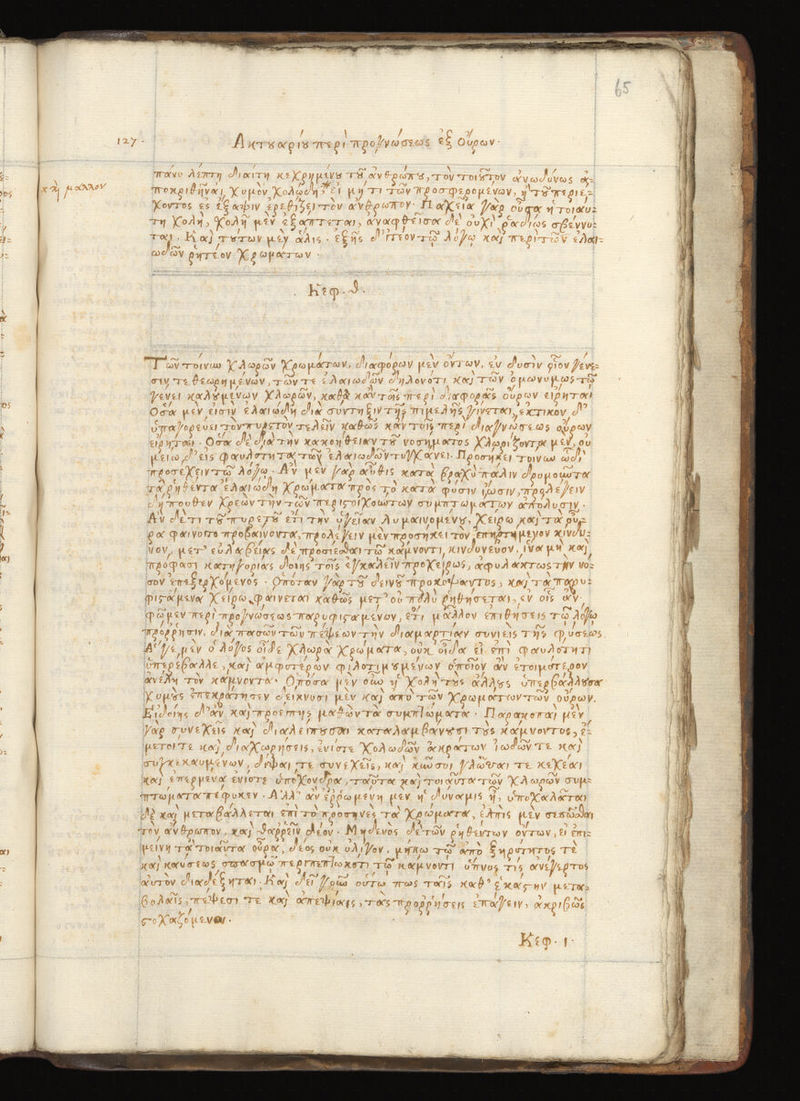 65
127.
Ἀκτουαρίου περὶ προγνώσεως ἐξ οὔρων·
καὶ μᾶλλον
πάνυ λεπτῇ διαίτῃ κεχρημένου τοῦ ἀνθρώπου, τὸν τοιοῦτον ἀνωδύνως ἀ-
ποκριθῆναι χυμὸν χολώδη, εἰ μή τι τῶν προσφερομένων, ἢ τοῦ περιέ-
χοντος ἐς ἔξαψιν ἐρεθίζει τὸν ἄνθρωπον· Παχεῖα γὰρ οὖσα ἡ τοιαύ-
τη χολὴ, χολὴ μὲν ἐξάπτεται, ἀναφθεῖσα δὲ οὐχὶ ῥαδίως σβέννυ-
ται. Καὶ τούτων μὲν ἅλις· ἑξῆς δ' ἰτέον τῷ λόγῳ καὶ περὶ τῶν ἐλαι-
ωδῶν ῥητέον χρωμάτων·
Κεφ. θ.
Τῶν τοίνυν χλωρῶν χρωμάτων, διαφόρων μὲν ὄντων, ἐν δυσὶν οἷον γένε-
σιν τε θεωρημένων, τῶν τε ἐλαιωδῶν δηλονότι καὶ τῶν ὁμωνύμως τῷ
γένει καλουμένων χλωρῶν, καθὰ κἂν τοῖς περὶ διαφορᾶς οὔρων εἴρηται
Ὅσα μὲν εἰσὶν ἐλαιώδη διὰ σύντηξιν τῆς πιμελῆς γίνεται, ἑκτικὸν δ'
ὑπαγορεύει τὸν πυρετὸν τελεῖν καθὼς κἂν τοῖς περὶ διαγνώσεως οὔρων
εἴρηται· Ὅσα δὲ διὰ τὴν κακοήθειαν τοῦ νοσήματος χλωρίζοντα μὲν, οὐ
μείω δ' εἰς φαυλότητα τῶν ἐλαιωδῶν τυγχάνει· Προσήκει τοίνυν ὧδι
προσέχειν τῷ λόγῳ· Ἂν μὲν γὰρ αὖθις κατὰ βραχὺ πάλιν δρομοῦντα
τὰ ῥηθέντα ἐλαιώδη χρώματα πρὸς τὸ κατὰ φύσιν ἴωσιν, προλέγειν
δήπουθεν χρεὼν τὴν τῶν περιστοιχούντων συμπτωμάτων ἀπόλυσιν·
Ἂν δέ τι τοῦ πυρετοῦ ἔτι τὴν ὑγείαν λυμαινομένου, χείρω καὶ τὰ οὖ-
ρα φαίνοιτο προβαίνοντα, προλέγειν μὲν προσήκει τὸν ἐπηρτημένον κίνδυ-
νον, μετ' εὐλαβείας δὲ προσιέσθαι τῷ κάμνοντι κινδυνεῦον, ἵνα μὴ καὶ
πρόφασι κατηγορίας δοίης τοῖς ἐγκαλεῖν προχείρως, ἀφυλάκτως τὴν νό-
σον ἐπεξερχόμενος· Ὁπόταν γὰρ τοῦ δεινοῦ προκόψαντος, καὶ τὰ παρυ-
φιστάμενα χείρω φαίνεται καθὼς μετ' οὐ πολὺ ῥηθήσεται, ἐν οἷς ἂν
φῶμεν περὶ προγνώσεως παρυφισταμένων, ἔτι μᾶλλον ἐπιθήσεις τῷ λόγῳ
πρόρρησιν, διὰ πασῶν τῶν πέψεων τὴν διαμαρτίαν συνιεὶς τῆς φύσεως.
Ἅ γε μὲν ὁ λόγος οἶδε χλωρὰ χρώματα, οὐκ οἶδα εἰ ἐπὶ φαυλότητι
ὑπερέβαλλε, καὶ ἀμφοτέρων φιλοτιμουμένων ὁποῖον ἂν ἑτοιμότερον
ἀνέλῃ τὸν κάμνοντα· Ὁπόσα μὲν οὖν ἡ χολὴ τοὺς ἄλλους ὑπερβάλλουσα
χυμοὺς ἐπεκράτησεν δείκνυσι μὲν καὶ ἀπὸ τῶν χρωμάτων τῶν οὔρων.
Εἰδοίης δ' ἂν καὶ προείποις μαθὼν τὰ συμπτώματα· Παρακοπαὶ μὲν
γὰρ συνεχεῖς καὶ διαλείπουσαι καταλαμβάνουσι τοὺς κάμνοντας, ἔ-
μετοί τε καὶ διαχωρήσεις, ἐνίοτε χολωδῶν ἀκράτων ἰωδῶν τε καὶ
συγκεκαυμένων, δίψαι τε συνεχεῖς, καὶ καῦσοι, γλῶτται τε κεχέαι
καὶ ἐπηρμένα ἐνίοτε ὑποχόνδρια, ταῦτα καὶ τοιαῦτα τῶν χλωρῶν συμ-
πτώματα πέφυκεν· Ἀλλ' ἂν ἐρρωμένη μὲν ἡ δύναμις ᾖ, ὑποχαλᾶται
δὲ καὶ μεταβάλλεται ἐπὶ τὸ προσηνὲς τὰ χρώματα, ἐλπὶς μὲν σεσῶσθαι
τὸν ἄνθρωπον, καὶ θαρρεῖν δέον· Μηδενὸς δὲ τῶν ῥηθέντων ὄντων, εἰ ἐπι-
μείνῃ τὰ τοιαῦτα οὖρα, δέος οὐκ ὀλίγον, μήπω τῷ ἀπὸ ξηρότητος τὲ
καὶ καύσεως σπασμῷ περιπεπτωκότι τῷ κάμνοντι ὕπνος τίς ἀνέγερτος
αὐτὸν διαδέξηται. Καὶ δεῖ γοῦν οὕτω πως ταῖς καθ' ἑκάστην μετα-
βολαῖς, πέψεσί τε καὶ ἀπεψίαις, τὰς προρρήσεις ἐπάγειν, ἀκριβῶς
στοχαζόμενον.
Κεφ. ι.